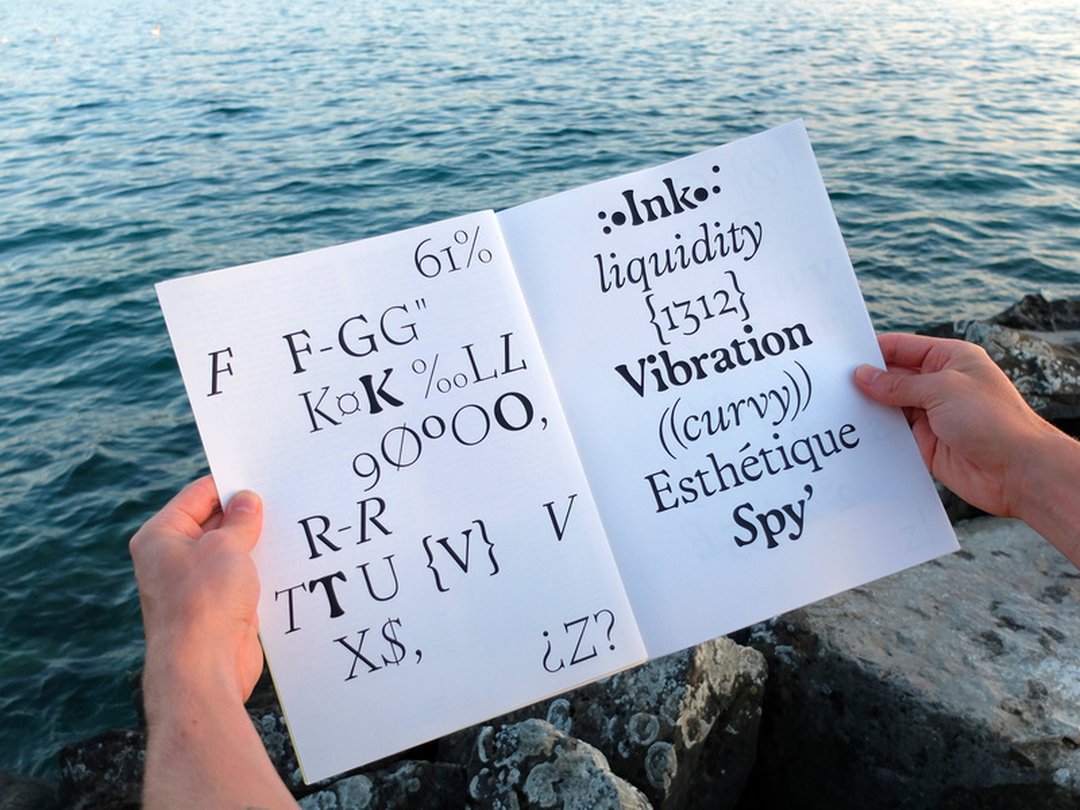 61%
F F-GG"
K¤K ‰LL
9Øº OO,
R-R
V
TTU {V}
X$,
¿Z?
:•Ink•:
liquidity
{1312}
Vibration
((curvy))
Esthétique
Spy’